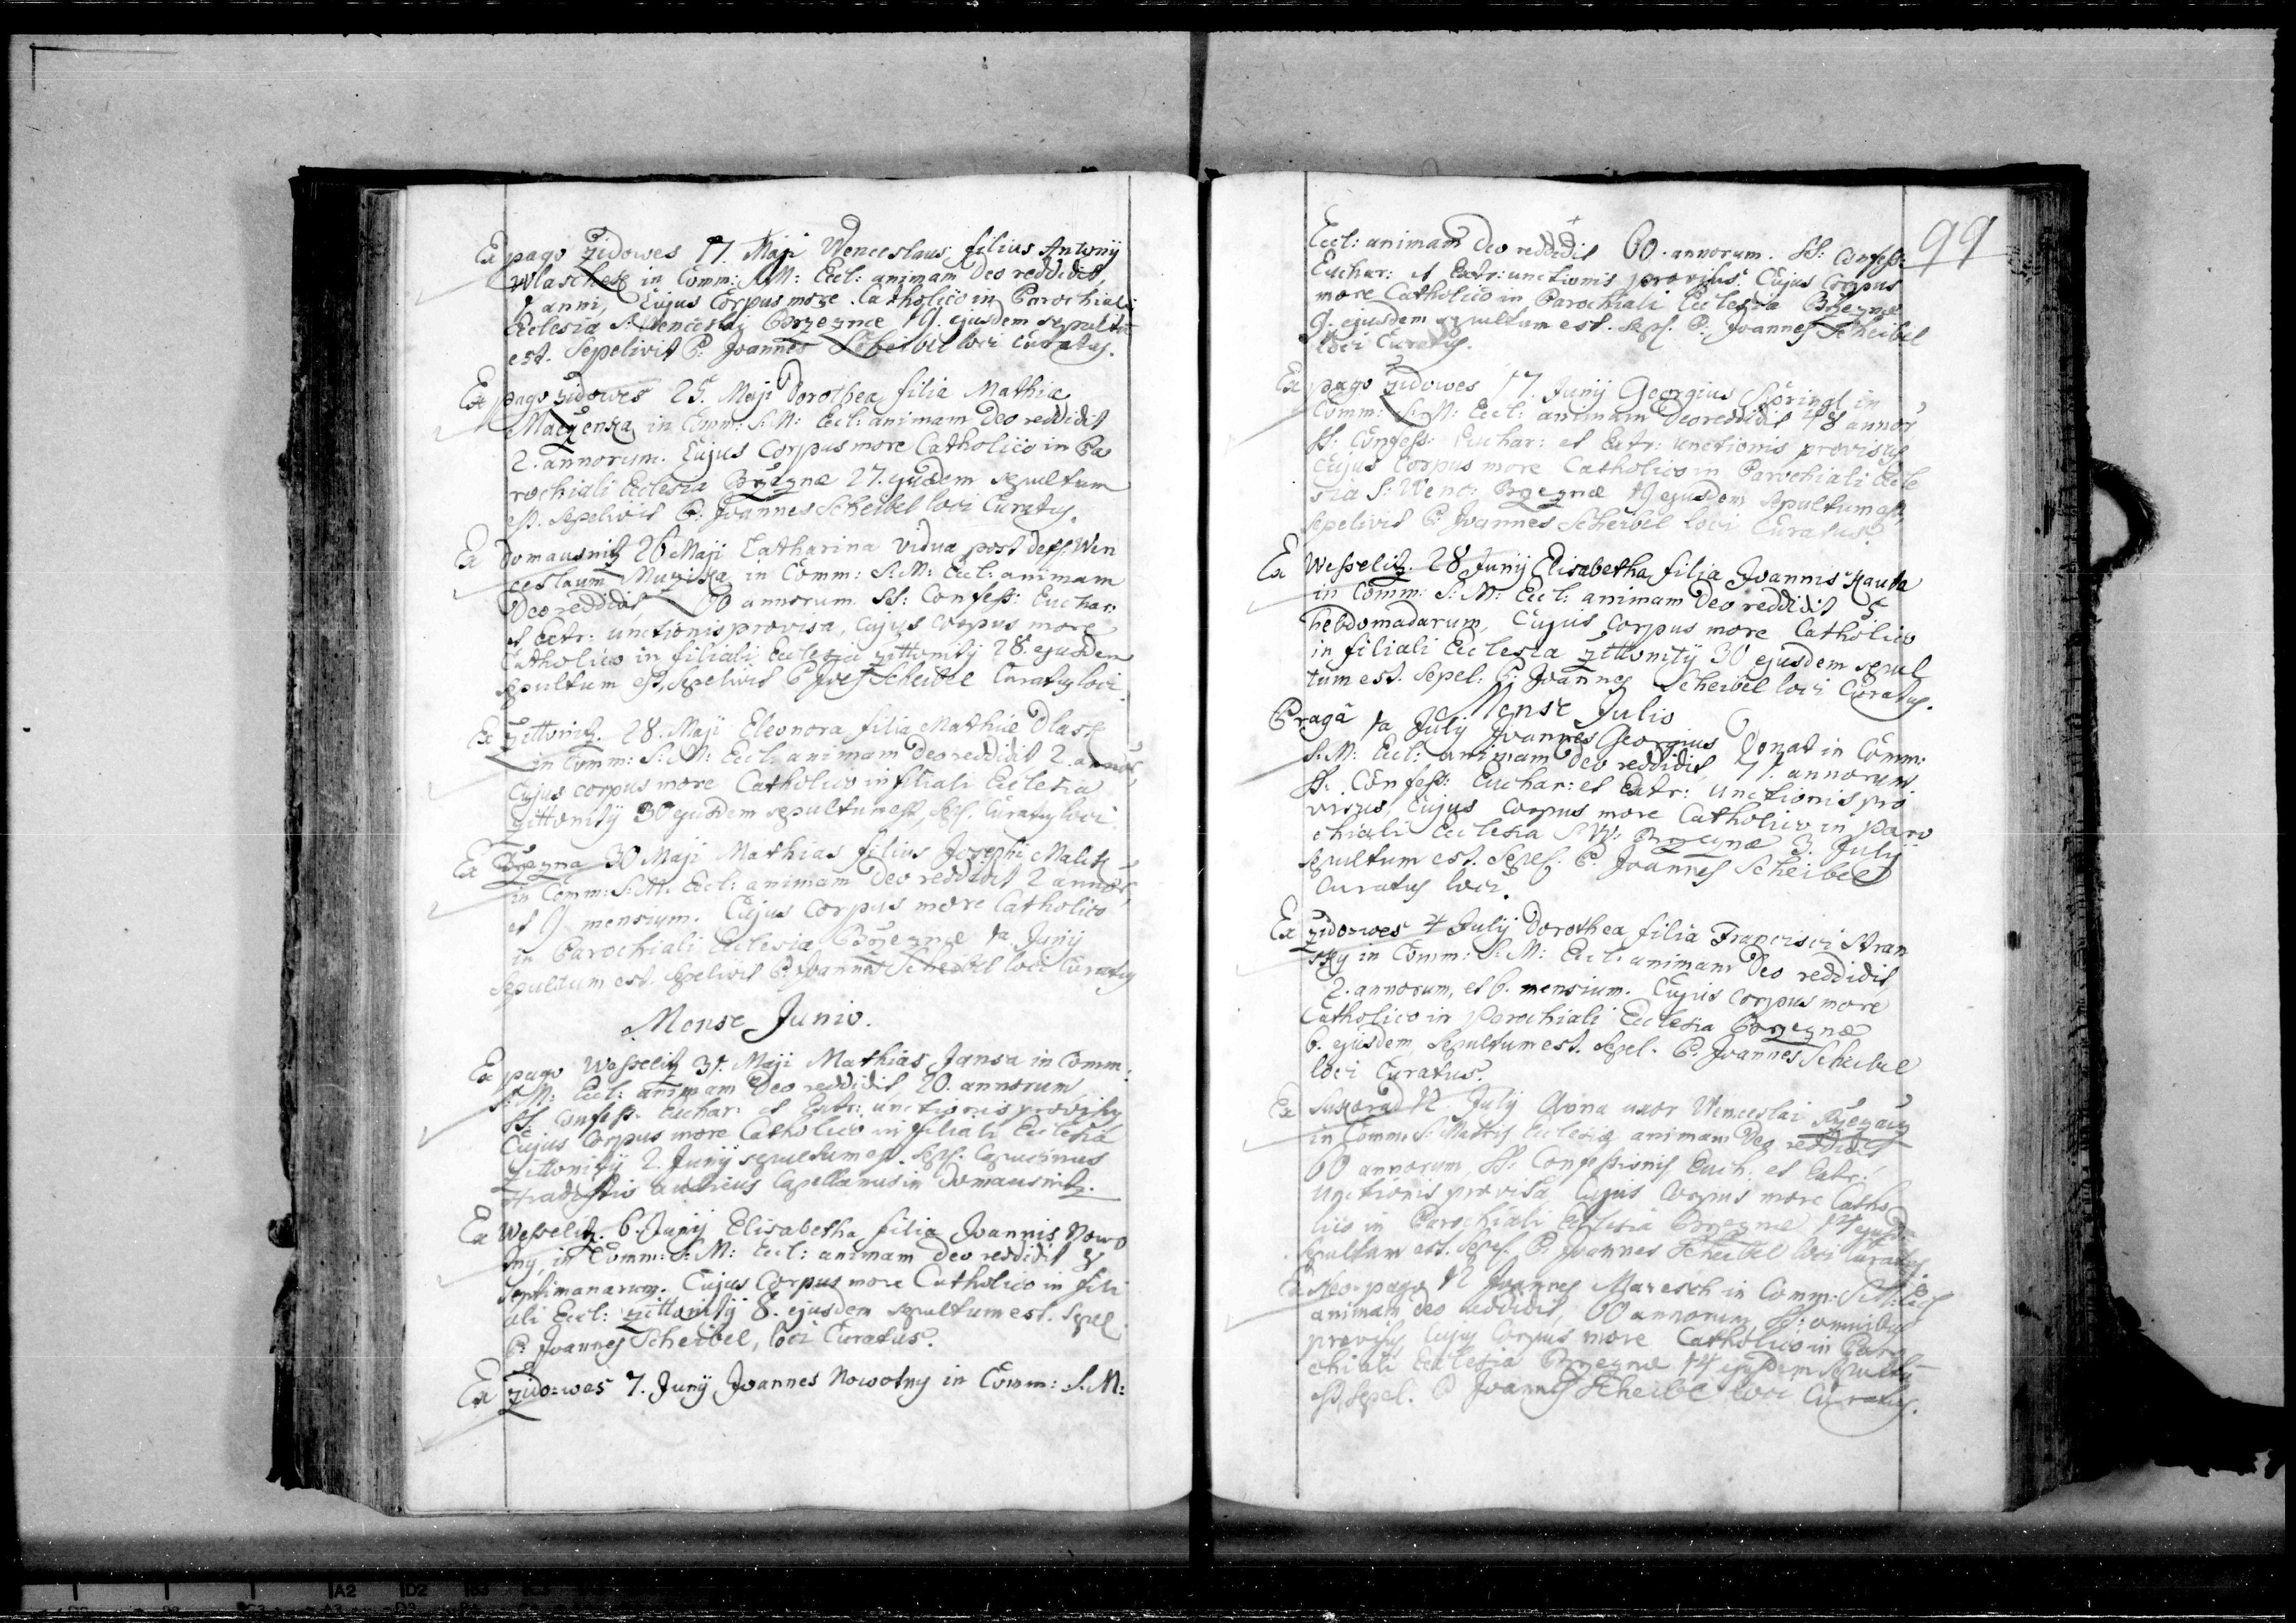 Ex pago Zidowes 17. Maji Wenceslaus filius Antonij
Wlaschek in Comm: S.M: Eccl: animam Deo reddidit
7 anni, Cujus Corpus more Catholico in Parochiali
Ecclesia S: Wenceslaj Brzeznae 19. ejusdem sepultū
est. Sepelivit P: Joannes Scheibel loci Curatus.
Ex pago Zidowes 25. Maji Dorothea filia Mathiae
in Comm: S:M: Eccl: animam Deo reddidit
2. annorum. Cujus Corpus more Catholico in Pa
rochiali Ecclesia Brzeznae 27. ejusdem sepultum
est. Sepelivit P: Joannes Scheibel loci Curatus.
Ex Domausnitz 26 Maji Catharina Vidua post def: Wen
ceslaum Muzika in Comm: S:M: Eccl: animam
Deo reddidit 60 annorum. SS: Confess: Euchar:
et Extr: unctionis provisa, cujus corpus more
Catholico in filiali Ecclesia Zittonitij 28. ejusdem
sepultum est, sepelivit P Joes Scheibel Curatus loci.
Ex Zittonitz. 28. Maji Eleonora filia Mathiae Dlask
in Comm: S:M: Eccl: animam Deo reddidit 2. annor,
Cujus corpus more Catholico in filiali Ecclesia
Zittonitij 30 ejusdem sepultum est, Sep. Curatus loci.
Ex Brzezna 30 Maji Mathias filius Josephi Malik
in Comm: S:M: Eccl: animam Deo reddidit 2 annor,
et 9 mensium. Cujus Corpus more Catholico
in Parochiali Ecclesia Brzeznae 1a Junij
Sepultum est. Sepelivit P: Joannes Scheibel loci Curatus
Mense Junio.
Ex pago Wesselitz 31. Maji Mathias Jansa in Comm:
S:M: Eccl: animam Deo reddidit, 20. annorum,
SS. Confess. Euchar: et Extr: unctionis provisus
Cujus Corpus more Catholico in filiali Ecclesia
Zittonitij 2. Junij sepultum est. Sep. Capucinus
Capellanus in Domausnitz.
Ex Wesselitz. 6. Junij Elisabetha filia Joannis Nowo
tny, in Comm: S:M: Eccl: animam Deo reddidit 3
septimanarum. Cujus Corpus more Catholico in fili
ali Eccl: Zittonitij 8. ejusdem sepultum est. Sepel.
P: Joannes Scheibel, loci Curatus.
Ex Zidowes 7. Junij Joannes Nowotny in Comm: S.M:
99
Eccl: animam Deo reddidit 60. annorum. SS: Confess:
Euchar: et Extr: unctionis provisus. Cujus Corpus
more Catholico in Parochiali Ecclesia Brzeznae
9. ejusdem sepultum est. Sep. P. Joannes Scheibel
loci Curatus.
Ex pago Zidowes 17. Junij Georgius Sporingl in
Comm: S:M: Eccl: animam Deo reddidit 78 annor
SS: Confess: Euchar: et Extr: unctionis provisus
Cujus Corpus more Catholico in Parochiali Eccle
sia S: Wenc: Brzeznae 19 ejusdem sepultum est,
sepelivit P: Joannes Scheibel loci Curatus.
Ex Wesselitz. 28 Junij Elisabetha filia Joannis Hauta
in Comm: S:M: Eccl: animam Deo reddidit 5
hebdomadarum, Cujus corpus more Catholico
in filiali Ecclesia Zittonitij 30 ejusdem sepul
tum est. Sepel: P: Joannes Scheibel loci Curatus.
Mense Julio
Praga 1a Julij Joannes Georgius Donat in Comm:
S:M: Eccl: animam Deo reddidit, 71. annorum
SS. Confess: Euchar: et Extr: unctionis pro
visus, Cujus Corpus more Catholico in Paro
chiali Ecclesia S.W: Brzeznae 3. Julij
sepultum est. Sepel. P: Joannes Scheibel
Curatus loci.
Ex Zidowes 4 Julij Dorothea filia Francisci Stran
sky in Comm: S:M: Eccl: animam Deo reddidit,
2. annorum, et 6. mensium. Cujus Corpus more
Catholico in Parochiali Ecclesia Brzeznae
6. ejusdem, Sepultum est. Sepel. P: Joannes Scheibel
loci Curatus.
Ex Sukorad 12 Julij Anna uxor Wenceslai
in Comm: S: Matris Ecclesiae animam Deo reddidit
60 annorum, SS: Confessionis Euch: et Extr:
Unctionis provisa Cujus Corpus more Catho
lico in Parochiali Ecclesia Brzeznae 14 ejusd:
Sepultum est. Sepel. P: Joannes Scheibel loci Curatus
Ex Neo-pago 12 Joannes Maresch in Comm: S:M: Eccl
animam Deo reddidit, 60 annorum, SS: omnibus
provisus Cujus Corpus more Catholico in Paro
chiali Ecclesia Brzeznae 14 ejusdem sepultū
est, Sepel. P Joannes Scheibel loci Curatus.